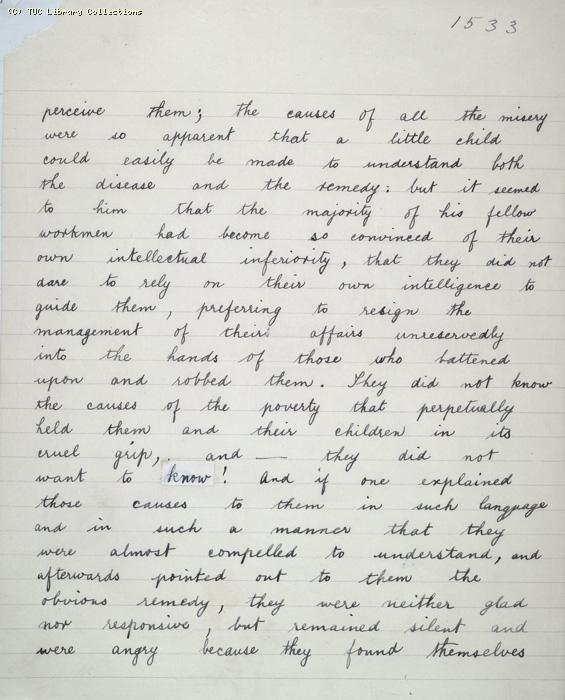 (C) TUC Library Collections
1533
perceive them; the causes of all the misery
were so apparent that a little child
could easily be made to understand both
the disease and the remedy: but it seemed
to him that the majority of his fellow
workmen had become so convinced of their
own intellectual inferiority, that they did not
dare to rely on their own intelligence to
guide them, preferring to resign the
management of their affairs unreservedly
into the hands of those who battened
upon and robbed them. They did not know
the causes of the poverty that perpetually
held them and their children in its
cruel grip, and — they did not
want to know! And if one explained
those causes to them in such language
and in such a manner that they
were almost compelled to understand, and
afterwards pointed out to them the
obvious remedy, they were neither glad
nor responsive, but remained silent and
were angry because they found themselves